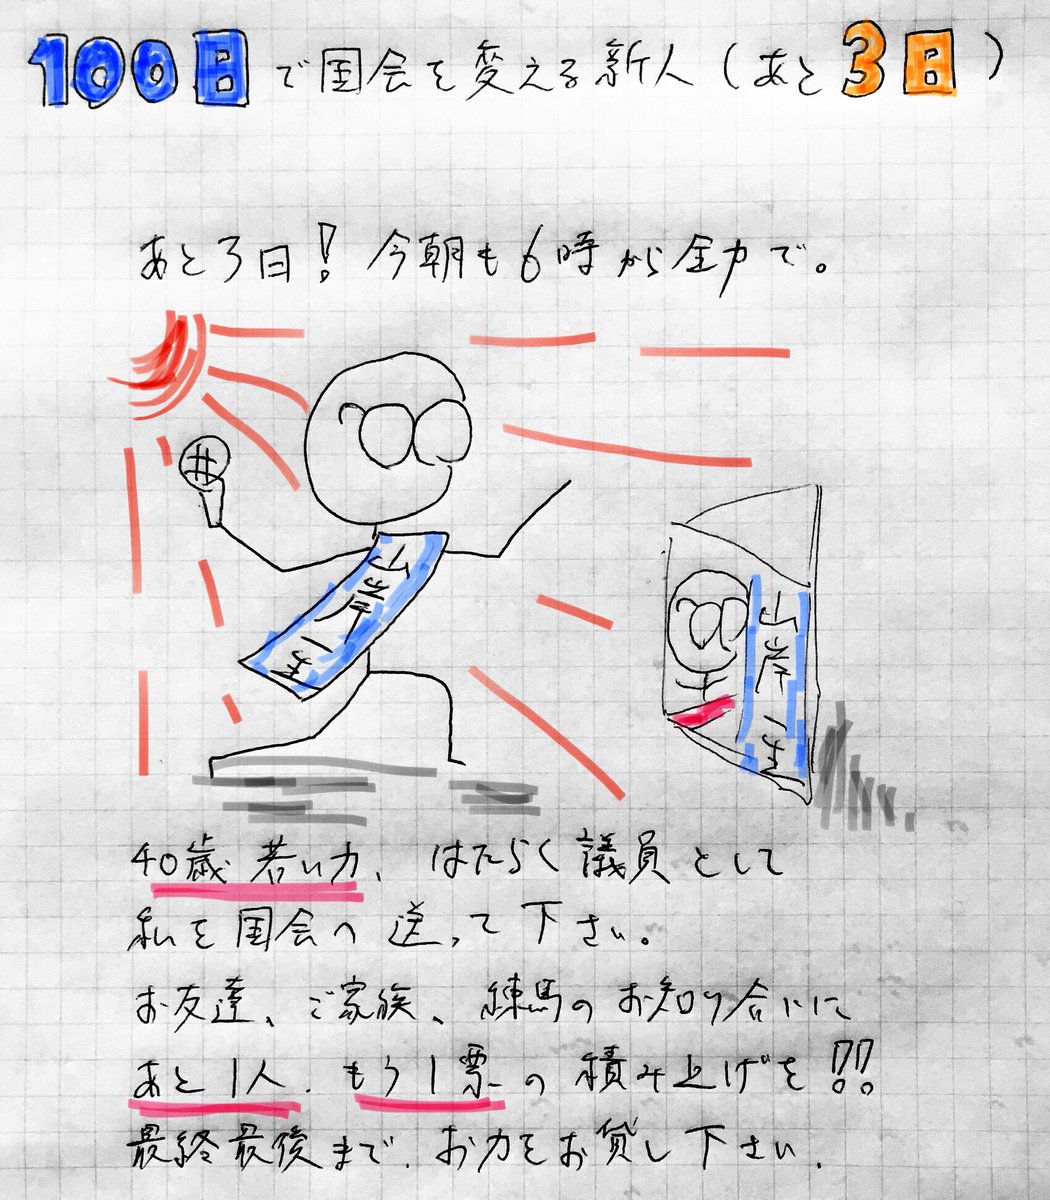 100日で国会を変える新人(あと3日)
あと3日!今朝も6時から全力で。
山岸一生
山岸一生
40歳 若い力、はたらく議員として
私を国会へ送って下さい。
お友達、ご家族、練馬のお知り合いに
あと1人、もう1票の積み上げを!!
最終最後まで、お力をお貸し下さい。